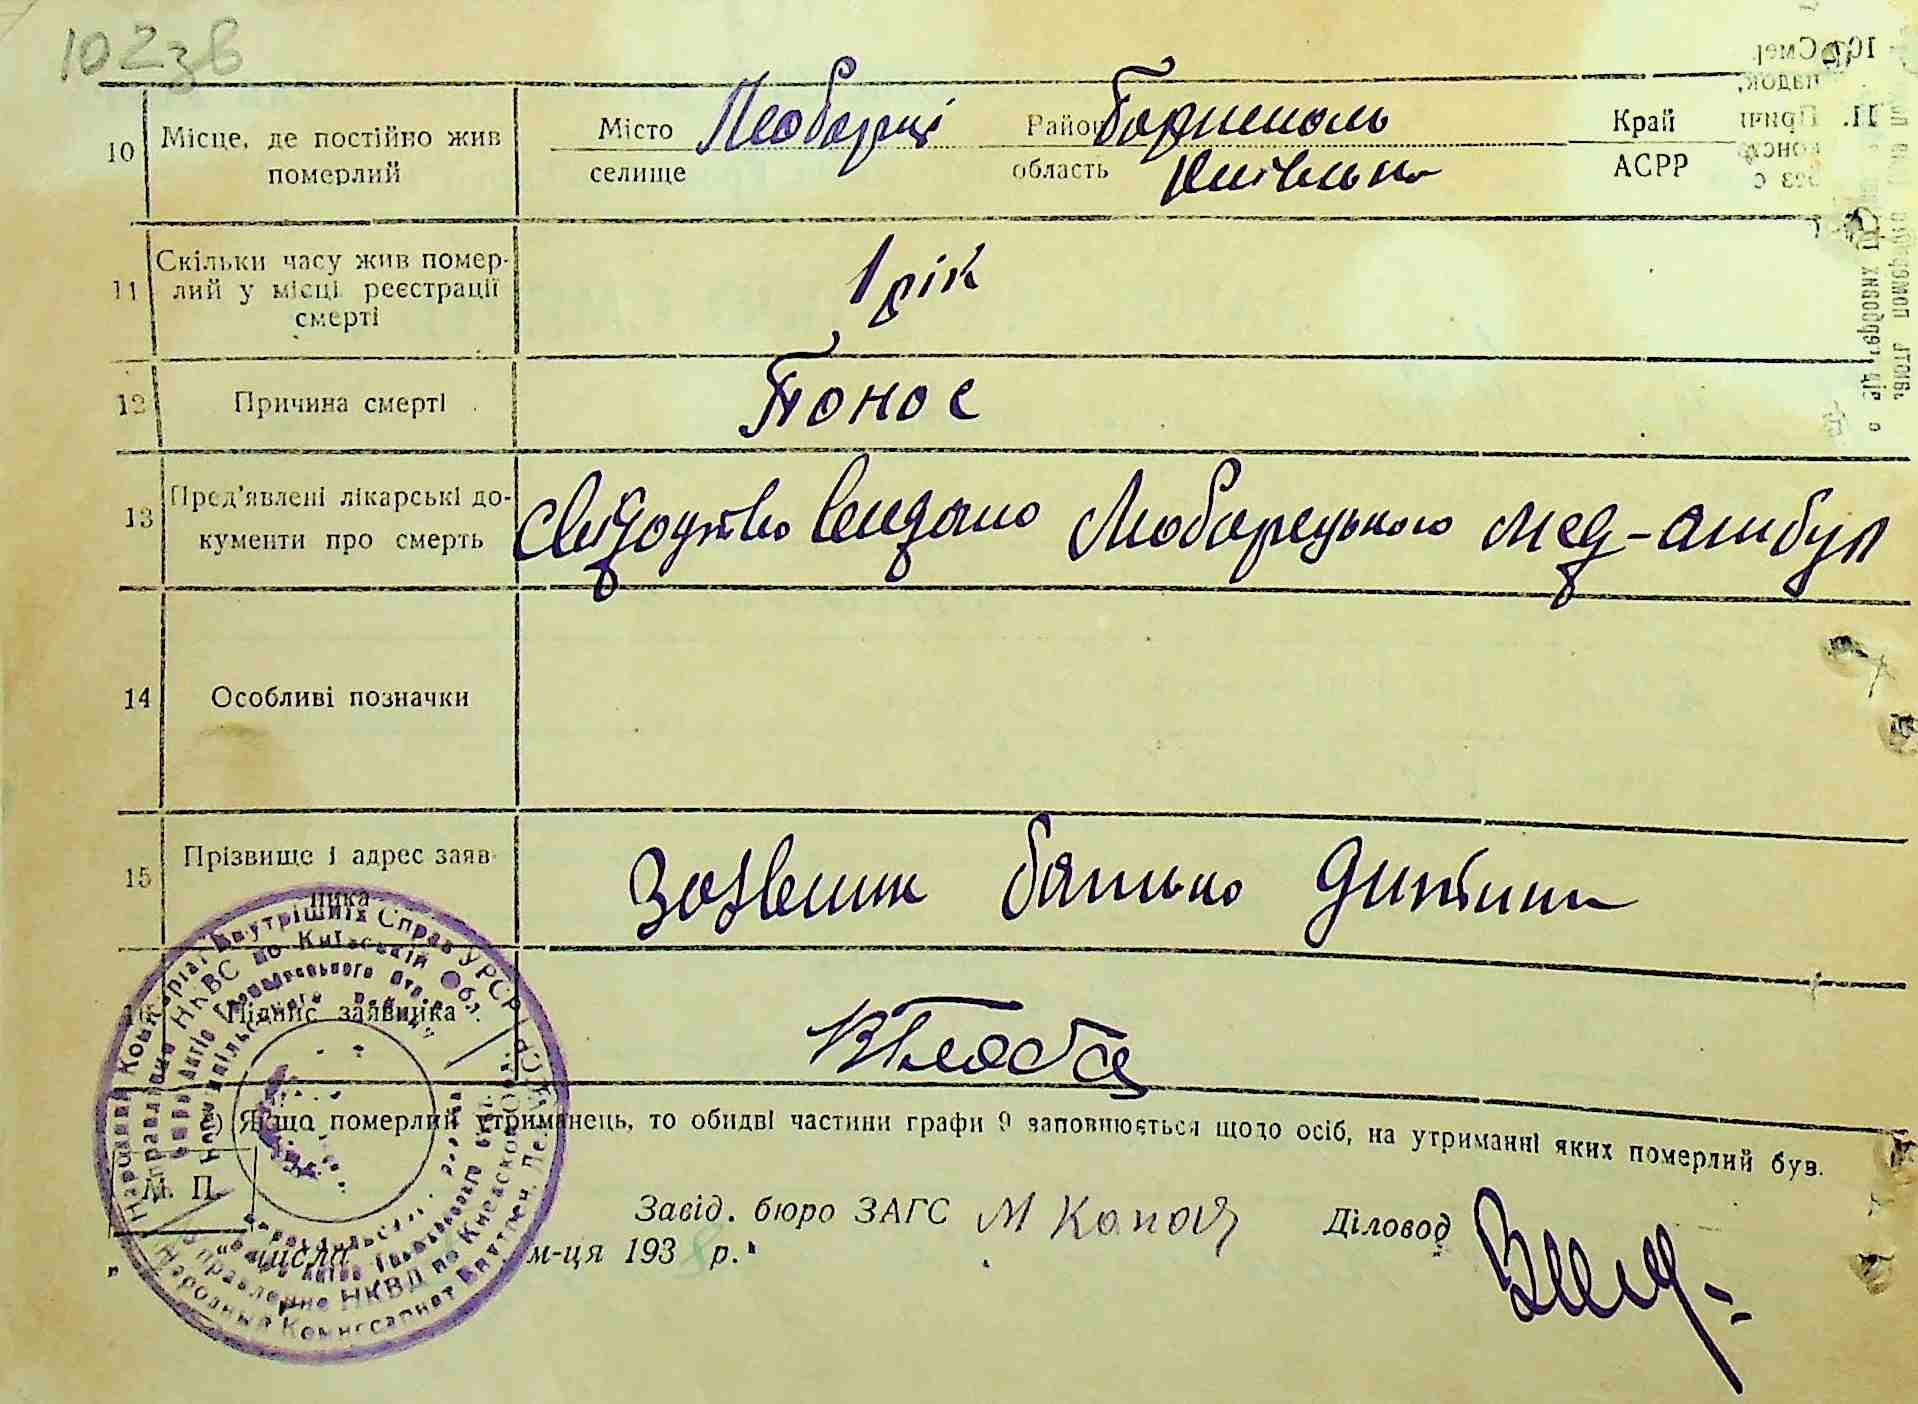 102зв
10 Місце, де постійно жив померлий
Місто Любарці Район Бориспіль Край
селище область Київська АСРР
11 Скільки часу жив помер-
лий у місці реєстрації
смерті
1 рік
12 Причина смерті
Понос
13 Пред'явлені лікарські до-
кументи про смерть
Свидоцтво видано Любарецького мед-амбул
14 Особливі позначки
15 Прізвище і адрес заяв-
ника
батько дитини
16 Підпис заявника
*) Якщо померлий утриманець, то обидві частини графи 9 заповнюється щодо осіб, на утриманні яких померлий був.
М. П.
Завід. бюро ЗАГС Діловод
" числа м-ця 1938 р.
Народний Комісаріат Внутрішніх Справ УРСР
Управління НКВС по Київській Обл.
Управление НКВД по Киевской Обл.
Народный Комиссариат Внутрен. Дел УССР